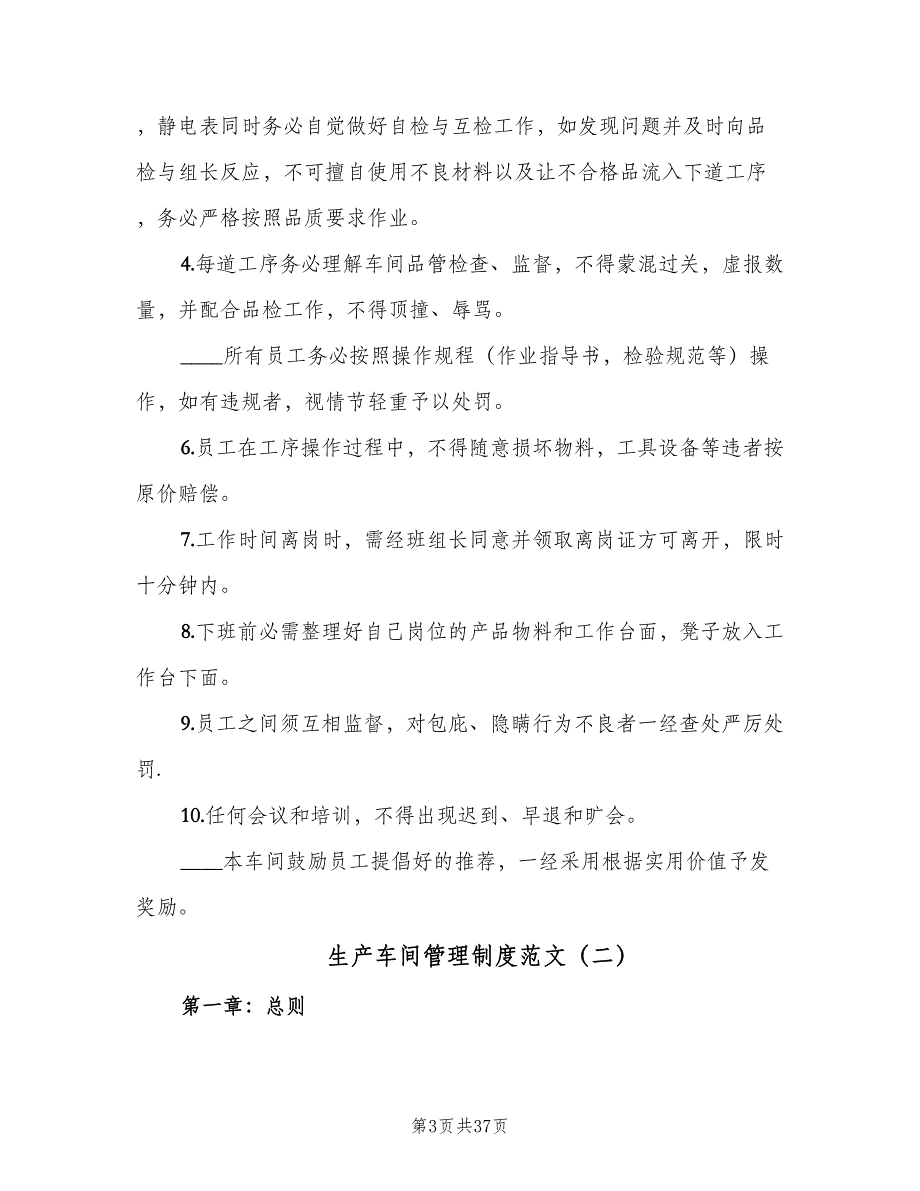 ，静电表同时务必自觉做好自检与互检工作，如发现问题并及时向品
检与组长反应，不可擅自使用不良材料以及让不合格品流入下道工序
，务必严格按照品质要求作业。
4.每道工序务必理解车间品管检查、监督，不得蒙混过关，虚报数
量，并配合品检工作，不得顶撞、辱骂。
____所有员工务必按照操作规程（作业指导书，检验规范等）操
作，如有违规者，视情节轻重予以处罚。
6.员工在工序操作过程中，不得随意损坏物料，工具设备等违者按
原价赔偿。
7.工作时间离岗时，需经班组长同意并领取离岗证方可离开，限时
十分钟内。
8.下班前必需整理好自己岗位的产品物料和工作台面，凳子放入工
作台下面。
9.员工之间须互相监督，对包庇、隐瞒行为不良者一经查处严厉处
罚.
10.任何会议和培训，不得出现迟到、早退和旷会。
____本车间鼓励员工提倡好的推荐，一经采用根据实用价值予发
奖励。
生产车间管理制度范文（二）
第一章：总则
第3页共37页